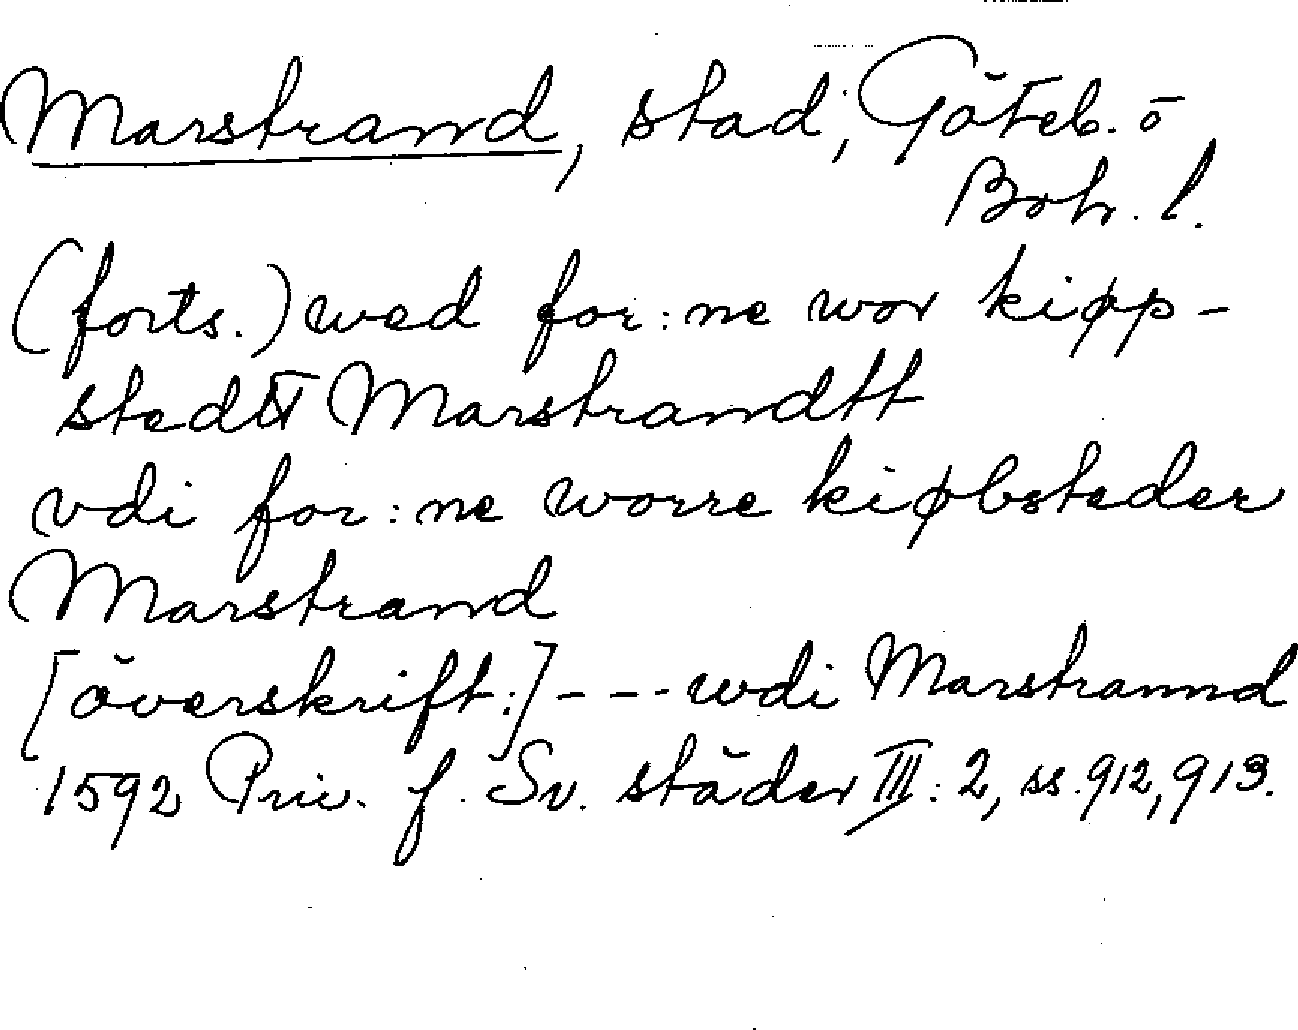 Marstrand, stad, Göteb. o
Boh. l.
(forts.) wed for:ne wor kiøp-
stedtt Marstrandtt
vdi for:ne worre kiøbsteder
Marstrand
[överskrift:] - - - wdi Marstrannd
1592 Priv. f. Sv. städer III: 2, ss. 912, 913.